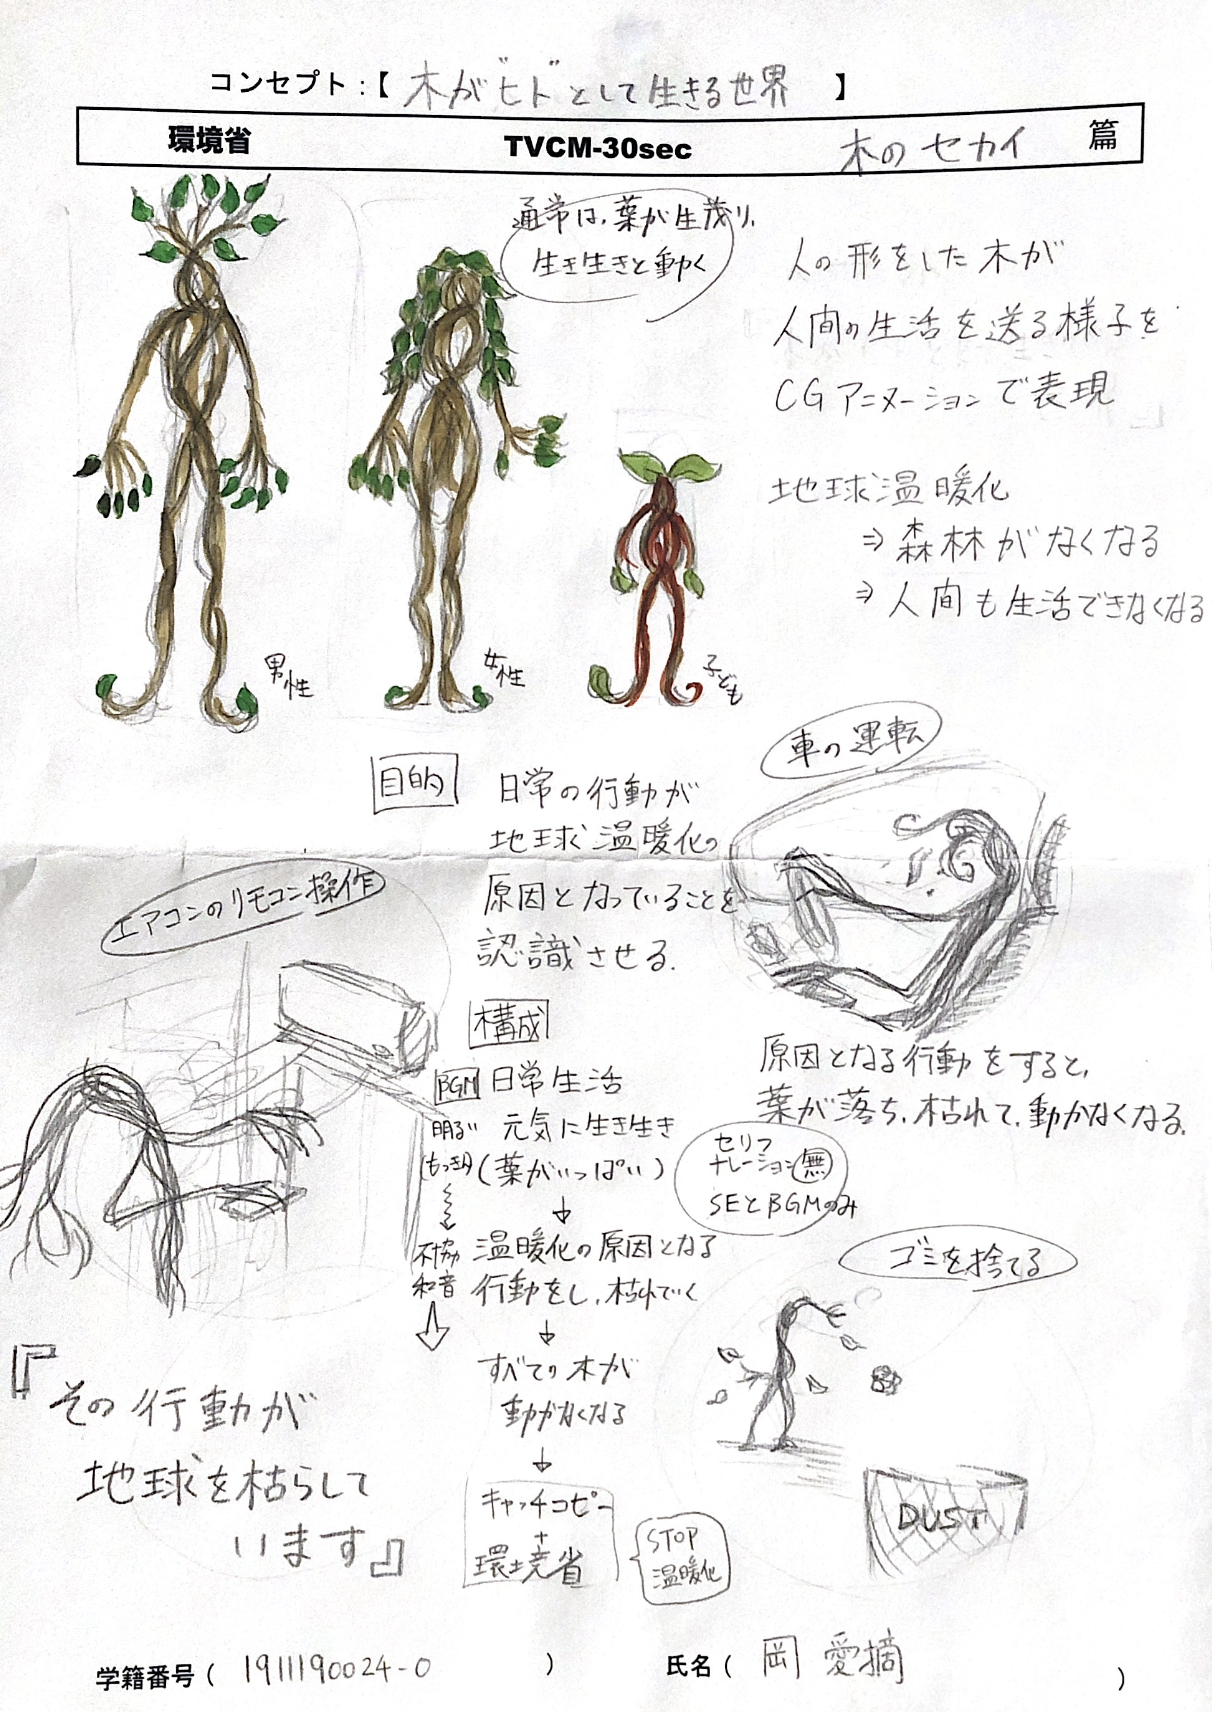 コンセプト:【 木が"ヒト"として生きる世界 】
環境省 TVCM-30sec 木のセカイ 篇
通常は、葉が生茂り、
生き生きと動く
人の形をした木が
人間の生活を送る様子を
CGアニメーションで表現
地球温暖化
⇒森林がなくなる
⇒人間も生活できなくなる
男性
女性
子ども
目的
日常の行動が
地球温暖化の
原因となっていることを
認識させる.
車の運転
エアコンのリモコン操作
原因となる行動をすると、
葉が落ち、枯れて、動かなくなる.
構成
BGM 日常生活
明るい 元気に生き生き
(葉がいっぱい)
↓
不協 温暖化の原因となる
和音 行動をし、枯れていく
↓
すべての木が
動かなくなる
↓
キャッチコピー
+
環境省
STOP
温暖化
セリフ
ナレーション無
SEとBGMのみ
ゴミを捨てる
DUST
『その行動が
地球を枯らして
います』
学籍番号( 1911190024-0 ) 氏名( 岡 愛摘 )